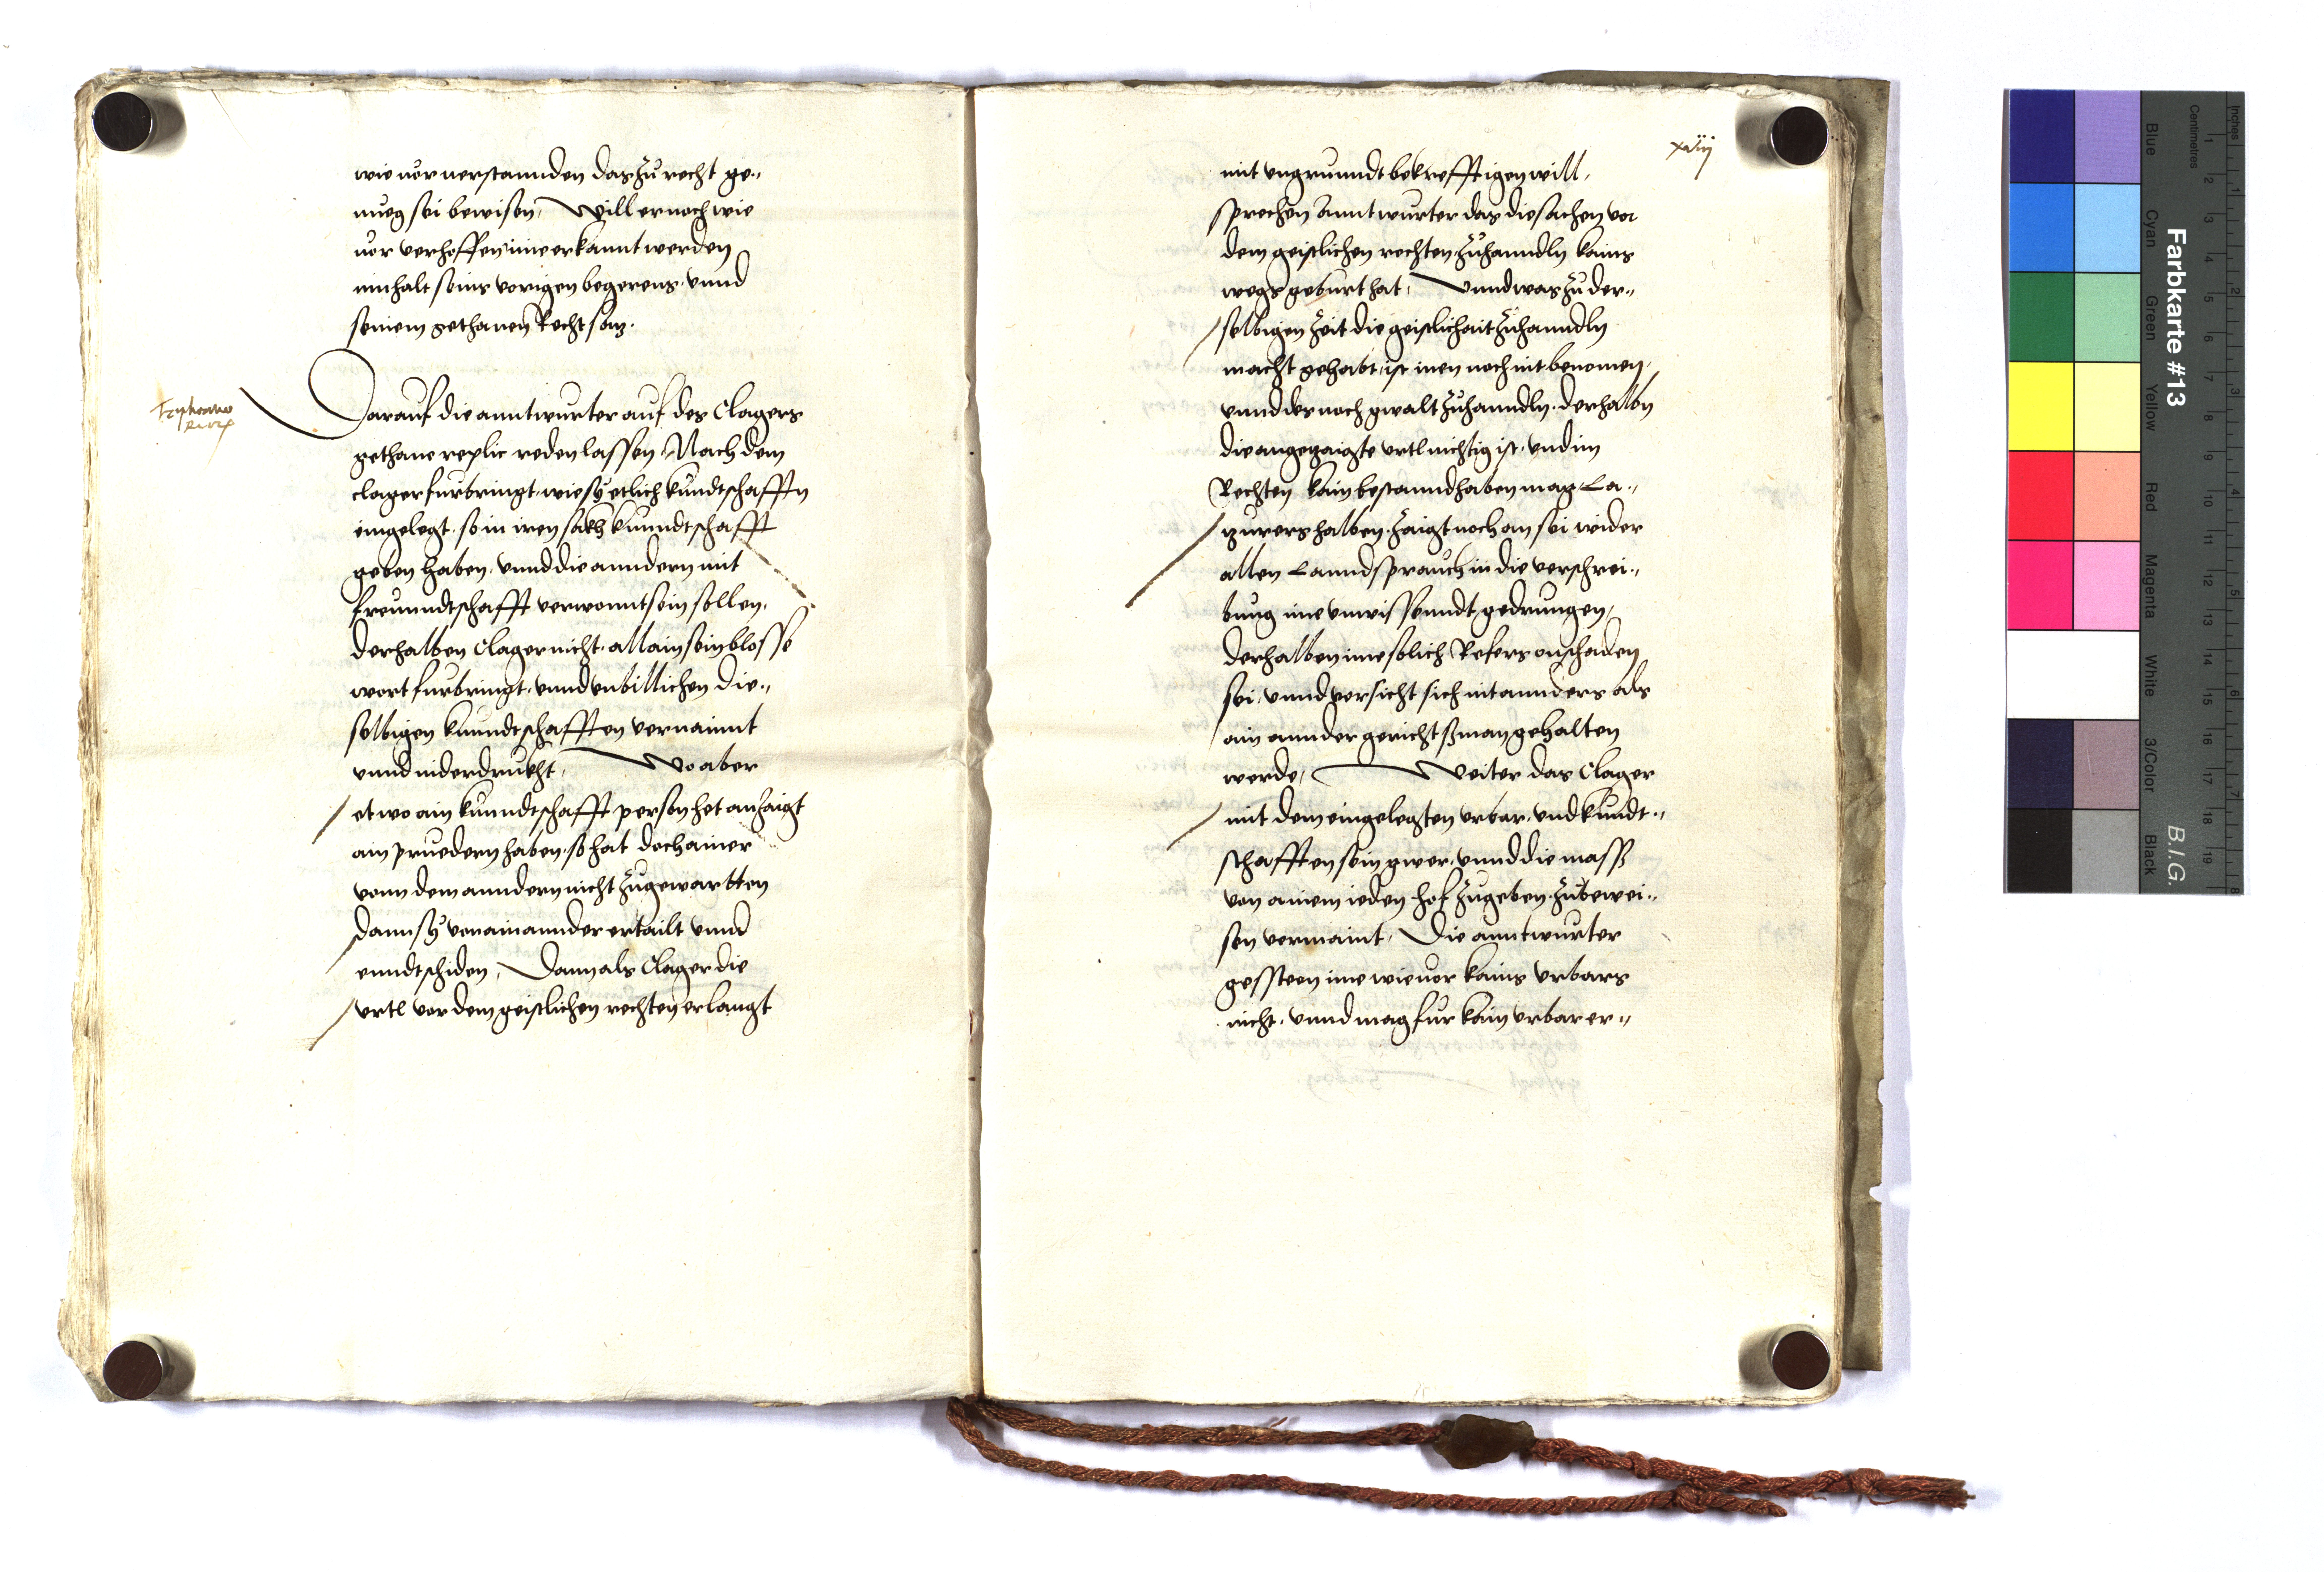 wie vor verstannden das zu recht ge„
nueg sei bewisen, Will er noch wie
vor verhoffen ime erkannt werden
innhalt seins vorigen begerens vnnd
seinem gethanen Rechtsatz.
Darauf die anntwurter auf des Clagers
gethane replic reden lassen, Nach dem
clager furbringt, wie sÿ etlich kundtschafftn
eingelegt, so in iren sachen kunndtschafft
geben haben, vnnd die anndern mit
freunndtschafft verwonnt sein sollen,
derhalben Clager nicht allain sein blosse
wort furbringt, vnnd vnbillichen die„
selbigen kunndtschafften vernaint
vnnd niderdrukht, Wo aber
etwo ain kunndtschafft person het anzaigt
ain pruedern haben, so hat doch ainer
vonn dem anndern nicht zugewartten
dann sÿ von ainannder ertailt vnnd
enndtschiden, Dann als Clager die
vrtl vor dem geistlichen rechten erlangt
xviij
mit vngrunndt bekrefftigen will,
sprechen Anntwurter das die sachen vor
dem geistlichen rechten zuhanndln kains
wegs geburt hat, Vnnd was zu der„
selbigen zeit die geistlichait zuhanndln
macht gehabt, ist inen noch nit benomen,
vnnd des noch gwalt zuhanndln, derhalbn
die angezaigte vrtl nichtig ist, vnd im
Rechten kain bestannd haben mag, La„
zurers halben, zaigt noch an sei wider
allen Lanndsprauch in die verschrei„
bung ime vnwissenndt gedrungen,
derhalben ime solich Refers onschaden
sei, vnnd versicht sich nit annders als
ain annder gerichtßman gehalten
werde, Weiter das Clager
mit dem eingelegten vrbar, vnd kundt„
schafften sein gwer, vnnd die mass
von ainem ieden hof zugeben zubewei„
sen vermaint, Die anntwurter
gessteen ime wie vor kains vrbars
nicht, vnnd mag fur kain vrbar er„
Farbkarte #13
B.I.G.
Inches
Centimetres
Blue
Cyan
Green
Yellow
Red
Magenta
White
3/Color
Black